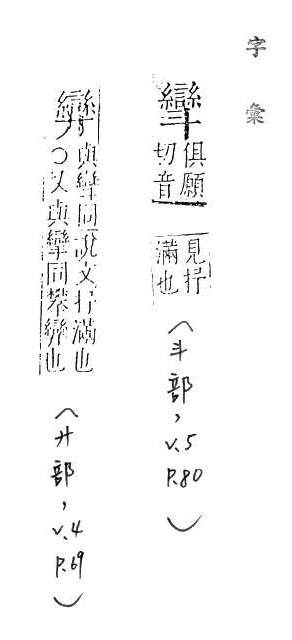 字彙
㪻 俱願切音見抒滿也
(斗部, v.5 P.80)
與㪻同說文抒滿也○又與攣同攀攣也
(廾部, v.4 P.69)